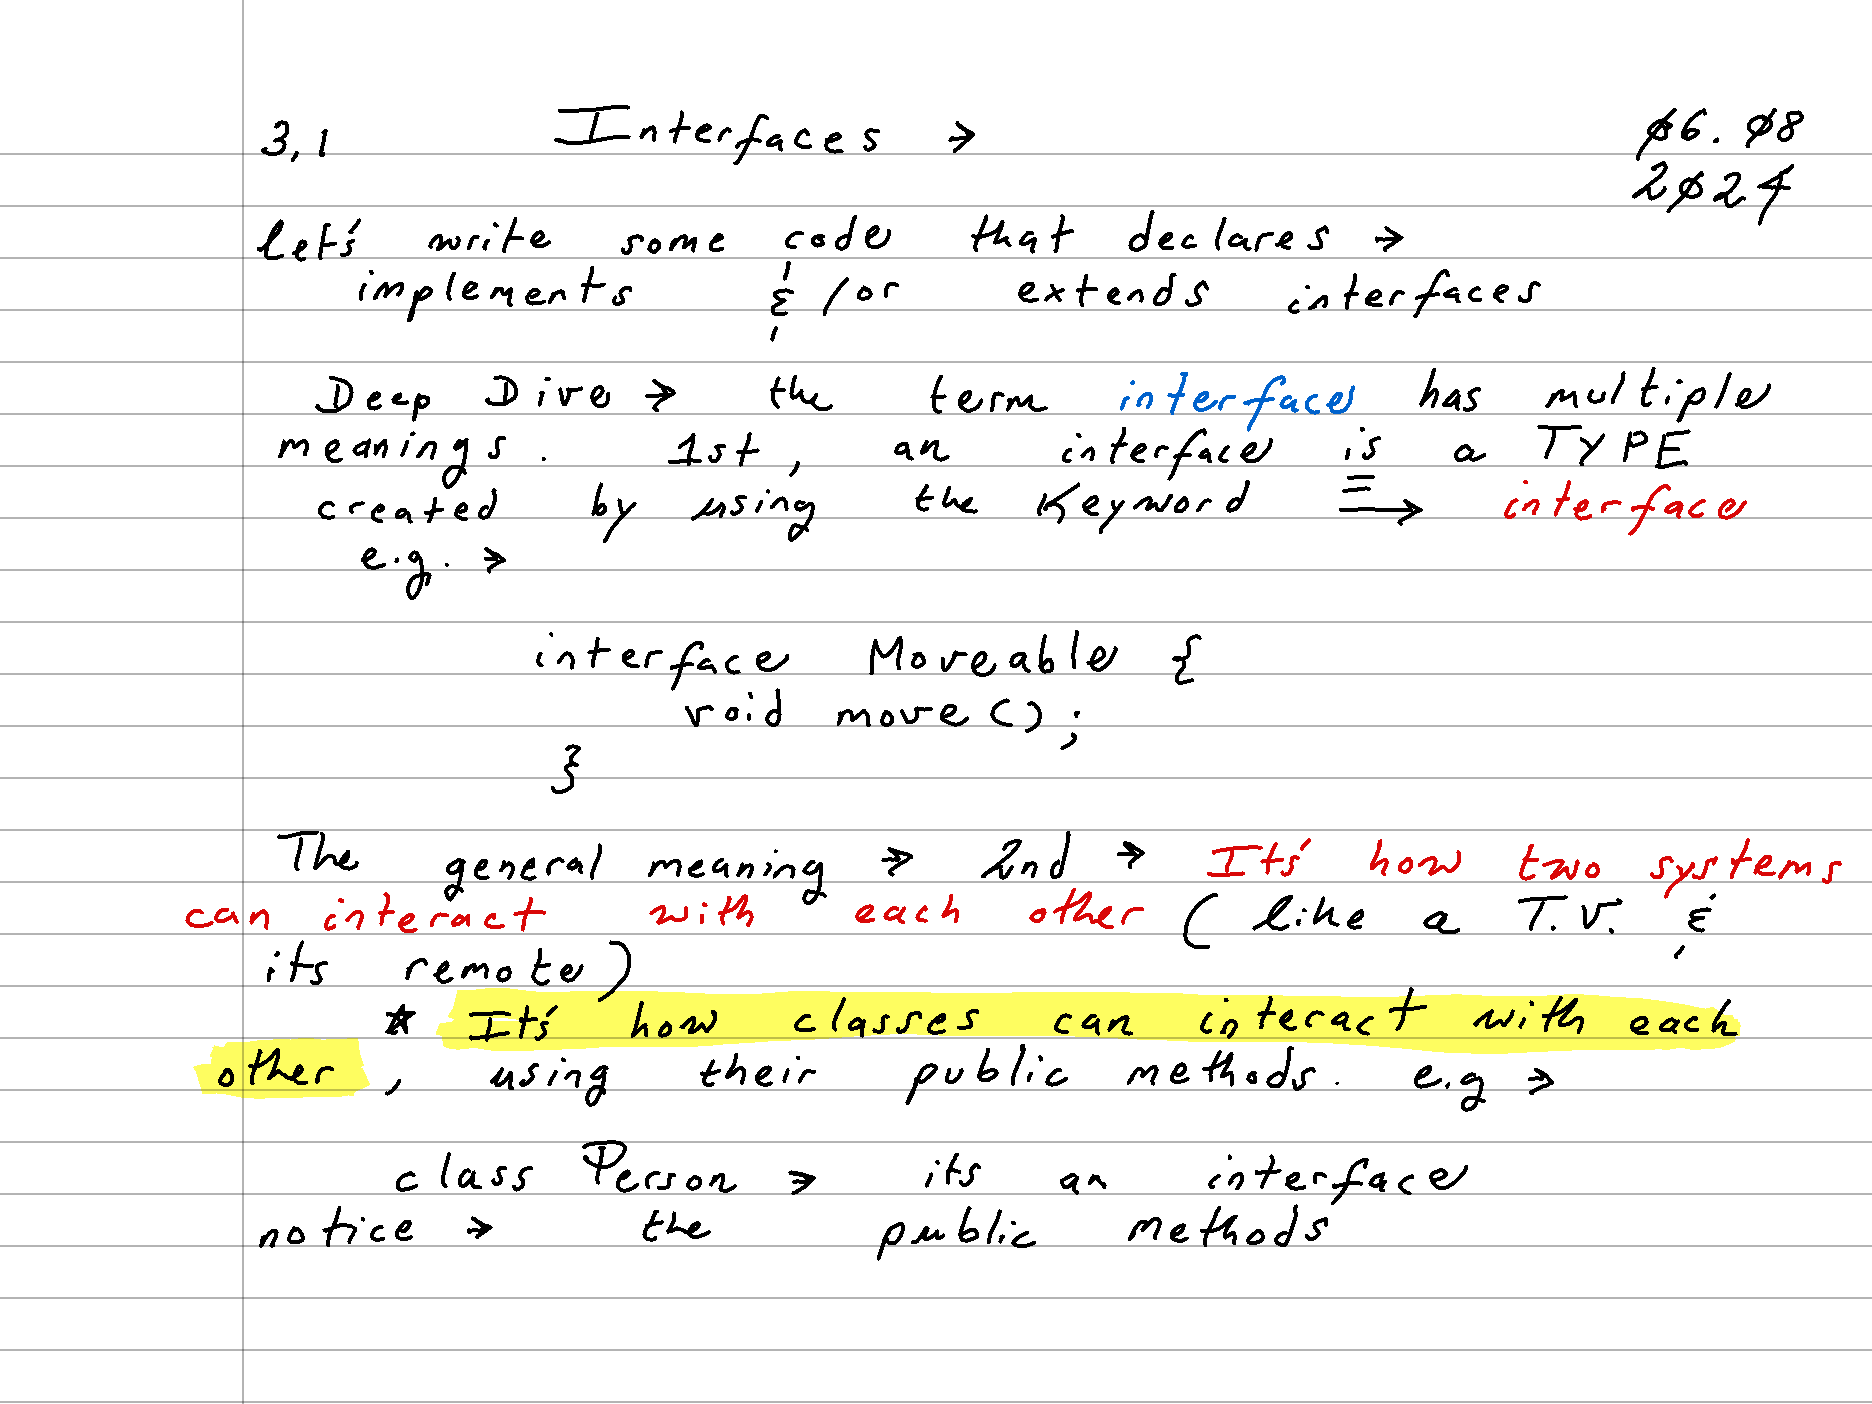 3,1 Interfaces → 06.08
2024
let's write some code that declares →
implements & /or extends interfaces
Deep Dive → the term interface has multiple
meanings. 1st, an interface is a TYPE
created by using the Keyword → interface
e.g. →
interface Moveable {
void move();
}
The general meaning → 2nd → It's how two systems
can interact with each other (like a T.V. &
its remote)
* It's how classes can interact with each
other, using their public methods. e.g →
class Person → its an interface
notice → the public methods